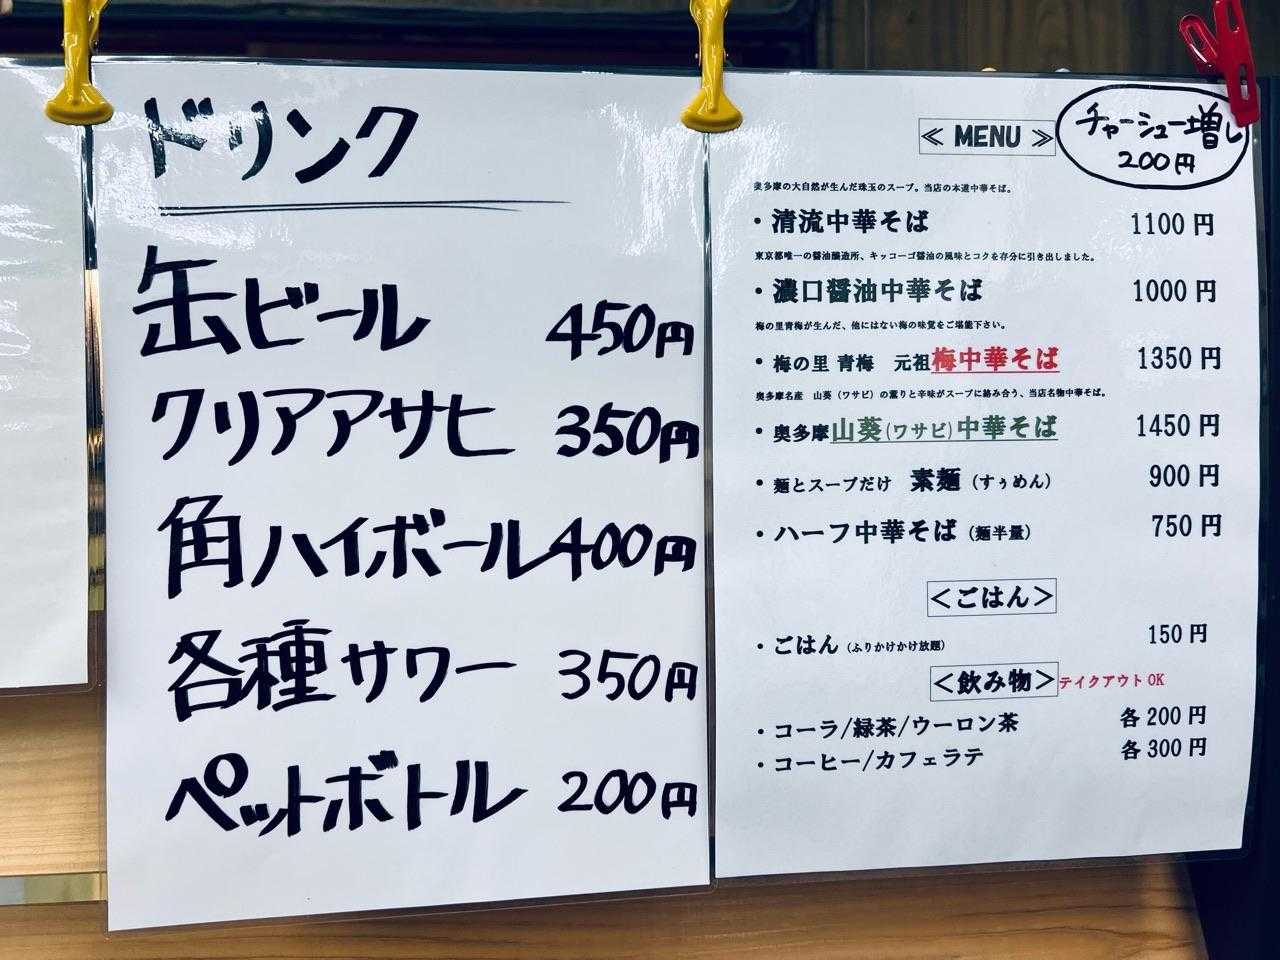 ドリンク
缶ビール 450円
クリアアサヒ 350円
角ハイボール 400円
各種サワー 350円
ペットボトル 200円
≪ MENU ≫
チャーシュー増し
200円
奥多摩の大自然が生んだ珠玉のスープ。当店の本道中華そば。
・清流中華そば 1100円
東京都唯一の醤油醸造所、キッコーゴ醤油の風味とコクを存分に引き出しました。
・濃口醤油中華そば 1000円
梅の里青梅が生んだ、他にはない梅の味覚をご堪能下さい。
・梅の里 青梅 元祖梅中華そば 1350円
奥多摩名産 山葵（ワサビ）の薫りと辛味がスープに絡み合う、当店名物中華そば。
・奥多摩山葵(ワサビ)中華そば 1450円
・麺とスープだけ 素麺（すぅめん） 900円
・ハーフ中華そば（麺半量） 750円
＜ごはん＞
・ごはん（ふりかけかけ放題） 150円
＜飲み物＞テイクアウトOK
・コーラ/緑茶/ウーロン茶 各200円
・コーヒー/カフェラテ 各300円